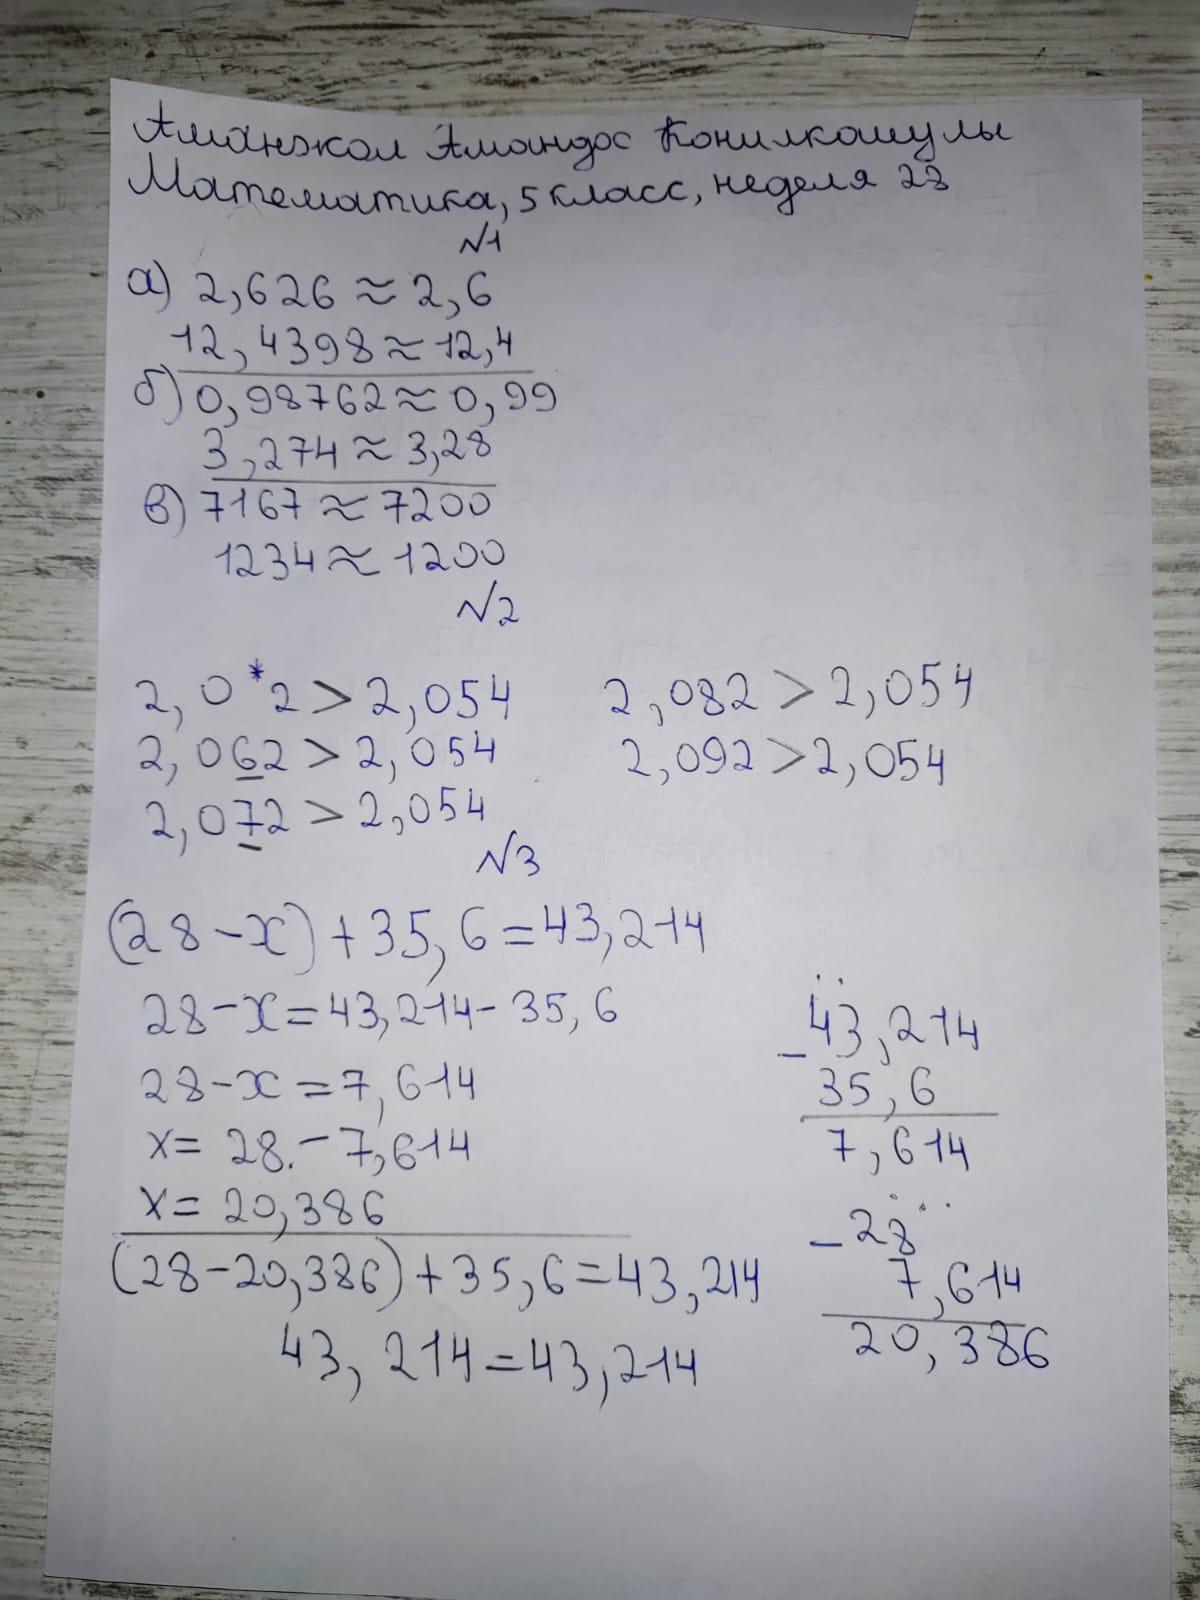 Аманжол Амандос Конилкошулы
Математика, 5 класс, неделя 23
№1
а) 2,626 ≈ 2,6
12,4398 ≈ 12,4
б) 0,98762 ≈ 0,99
3,274 ≈ 3,28
в) 7167 ≈ 7200
1234 ≈ 1200
№2
2,0*2 > 2,054
2,062 > 2,054
2,072 > 2,054
2,082 > 2,054
2,092 > 2,054
№3
(28 - x) + 35,6 = 43,214
28 - x = 43,214 - 35,6
28 - x = 7,614
x = 28. - 7,614
x = 20,386
(28 - 20,386) + 35,6 = 43,214
43,214 = 43,214
- 43,214
35,6
7,614
- 28
7,614
20,386